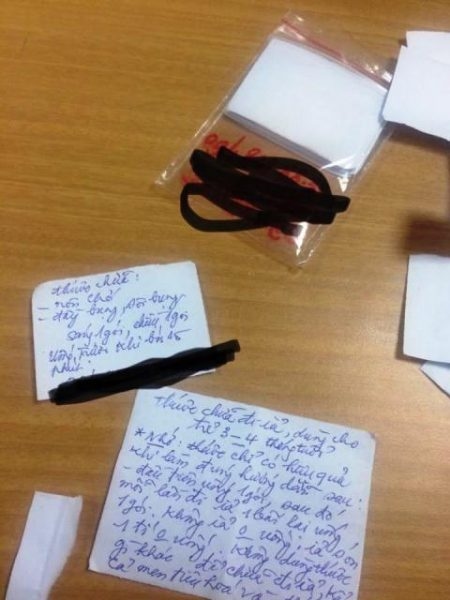 thuốc chữa:
- nôn chớ
- đầy bụng, sôi bụng
sáng 1 gói, chiều 1 gói
uống trước khi bú 20
phút.
thuốc chữa đi ỉa, dùng cho
trẻ 3-4 tháng tuổi
* Nhớ: thuốc chỉ có hiệu quả
khi làm đúng hướng dẫn sau:
- đầu tiên uống 1 gói, sau đó
mỗi lần đi ỉa 1 lần lại uống
1 gói. không ỉa 0 uống, ỉa són
1 tí 0 uống. không dùng thuốc
gì khác để chữa đi ỉa, kể
cả men tiêu hoá